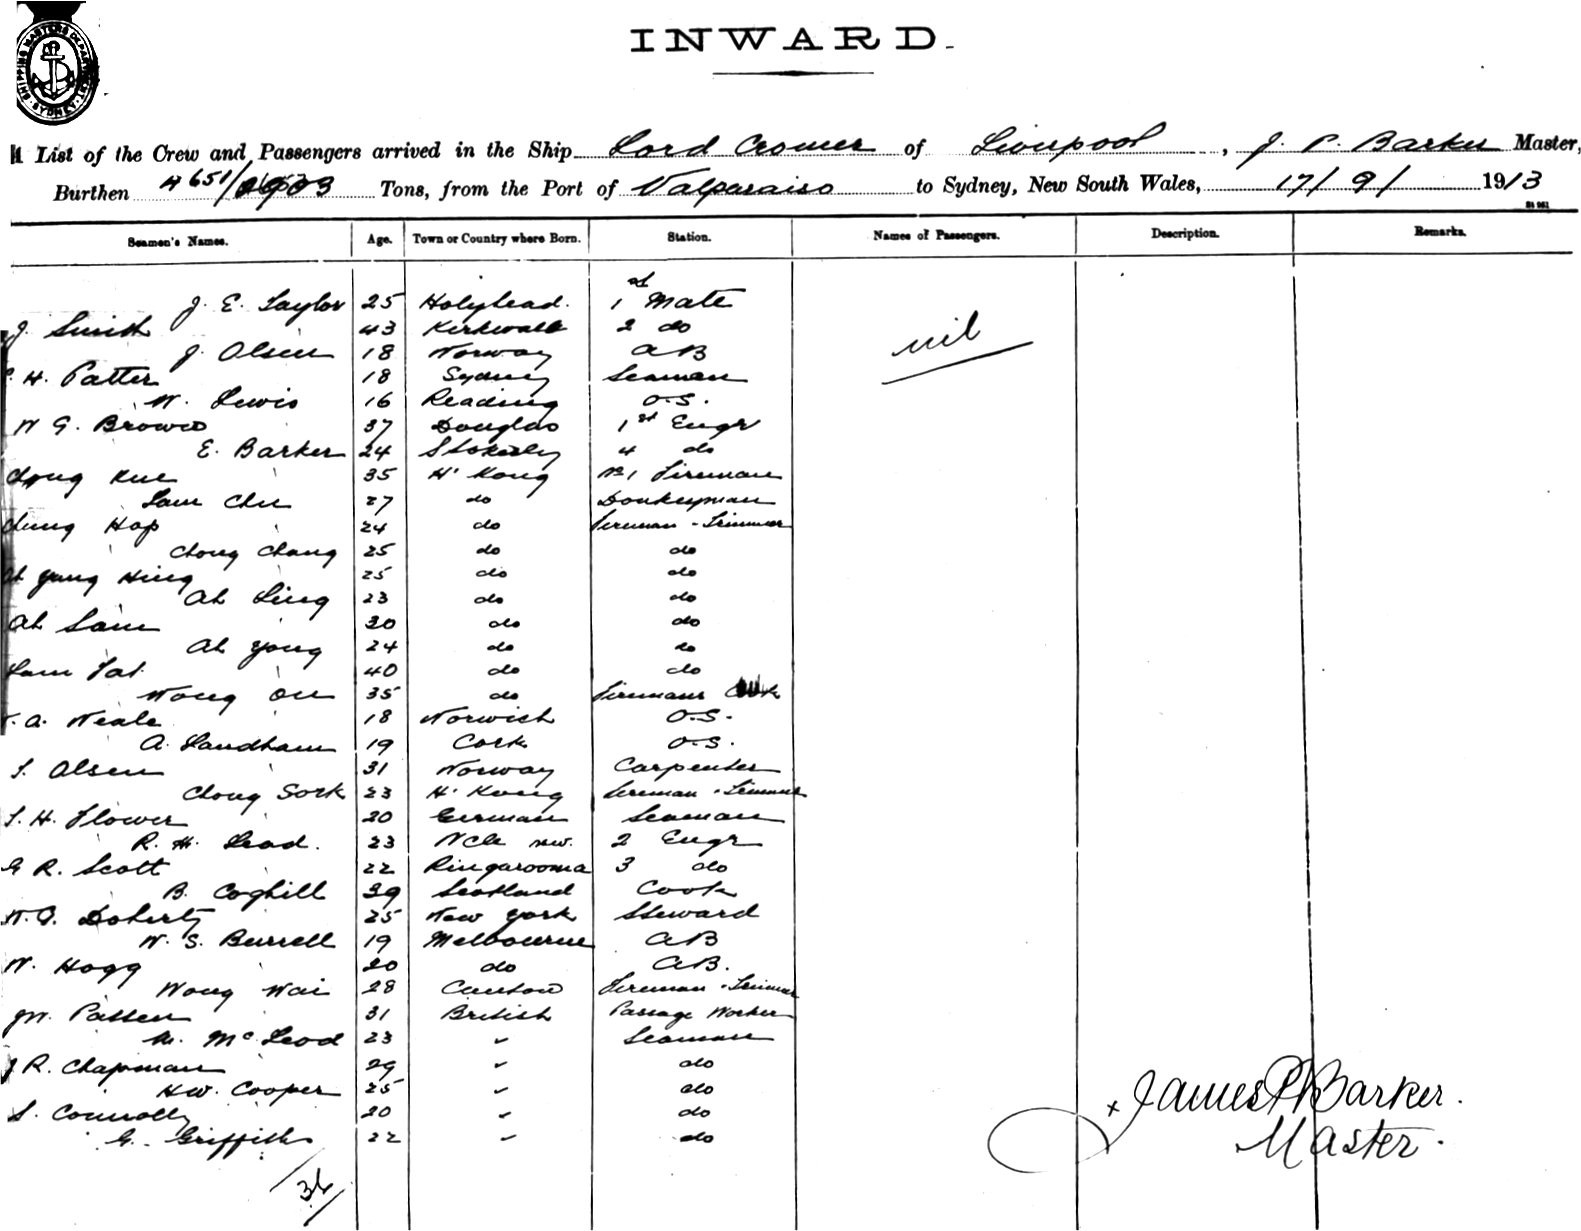 SHIPPING MASTERS DEPARTMENT · SYDNEY ·
INWARD.
A List of the Crew and Passengers arrived in the Ship Lord Cromer of Liverpool, J. P. Barker Master,
Burthen 4651/ Tons, from the Port of Valparaiso to Sydney, New South Wales, 17/9/ 1913
Seamen's Names. Age. Town or Country where Born. Station. Names of Passengers. Description. Remarks.
J. E. Taylor 25 Holyhead. 1st Mate
J. Smith 43 Kirkwall 2 do
nil
J. Olsen 18 Norway AB
H. Patter 18 Sydney Seaman
W. Lewis 16 Reading O.S.
W G. Brown 37 Douglas 1st Engr
E. Barker 24 Stokesley 4 do
Chong Kue 35 H' Kong No 1 Fireman
Lam Chu 27 do Donkeyman
Chung Hop 24 do Fireman - Trimmer
Chong Chang 25 do do
Ah Yung Hing 25 do do
Ah Ling 23 do do
Ah Sam 30 do do
Ah Yong 24 do do
Lam Tat 40 do do
Wong On 35 do Firemans Cook
A. Neale 18 Norwich O.S.
A. Landham 19 Cork O.S.
T. Olsen 31 Norway Carpenter
Chong Sork 23 H' Kong Fireman - Trimmer
T. H. Flower 20 German Seaman
R. H. Lead. 23 NCle nw. 2 Engr
G R. Scott 22 Ringarooma 3 do
B. Coghill 39 Scotland Cook
W. J. Doherty 25 New York Steward
W. S. Burrell 19 Melbourne AB
W. Hogg 20 do AB.
Wong Wai 28 Canton Fireman - Trimmer
JW. Patten 31 British Passage Worker
M. McLeod 23 " Seaman
J R. Chapman 29 " do
H.W. Cooper 25 " do
S. Connolly 20 " do
G. Griffith 22 " do
x James P Barker.
Master.
36